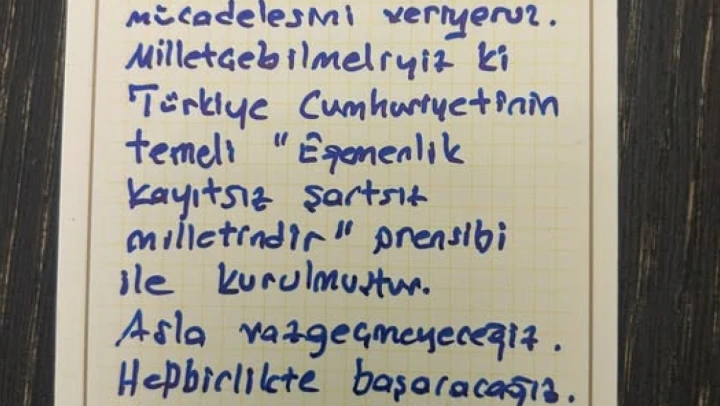 mücadelesini veriyoruz.
Milletçe bilmeliyiz ki
Türkiye Cumhuriyetinin
temeli "Egemenlik
kayıtsız şartsız
milletindir" prensibi
ile kurulmuştur.
Asla vazgeçmeyeceğiz.
Hepbirlikte başaracağız.